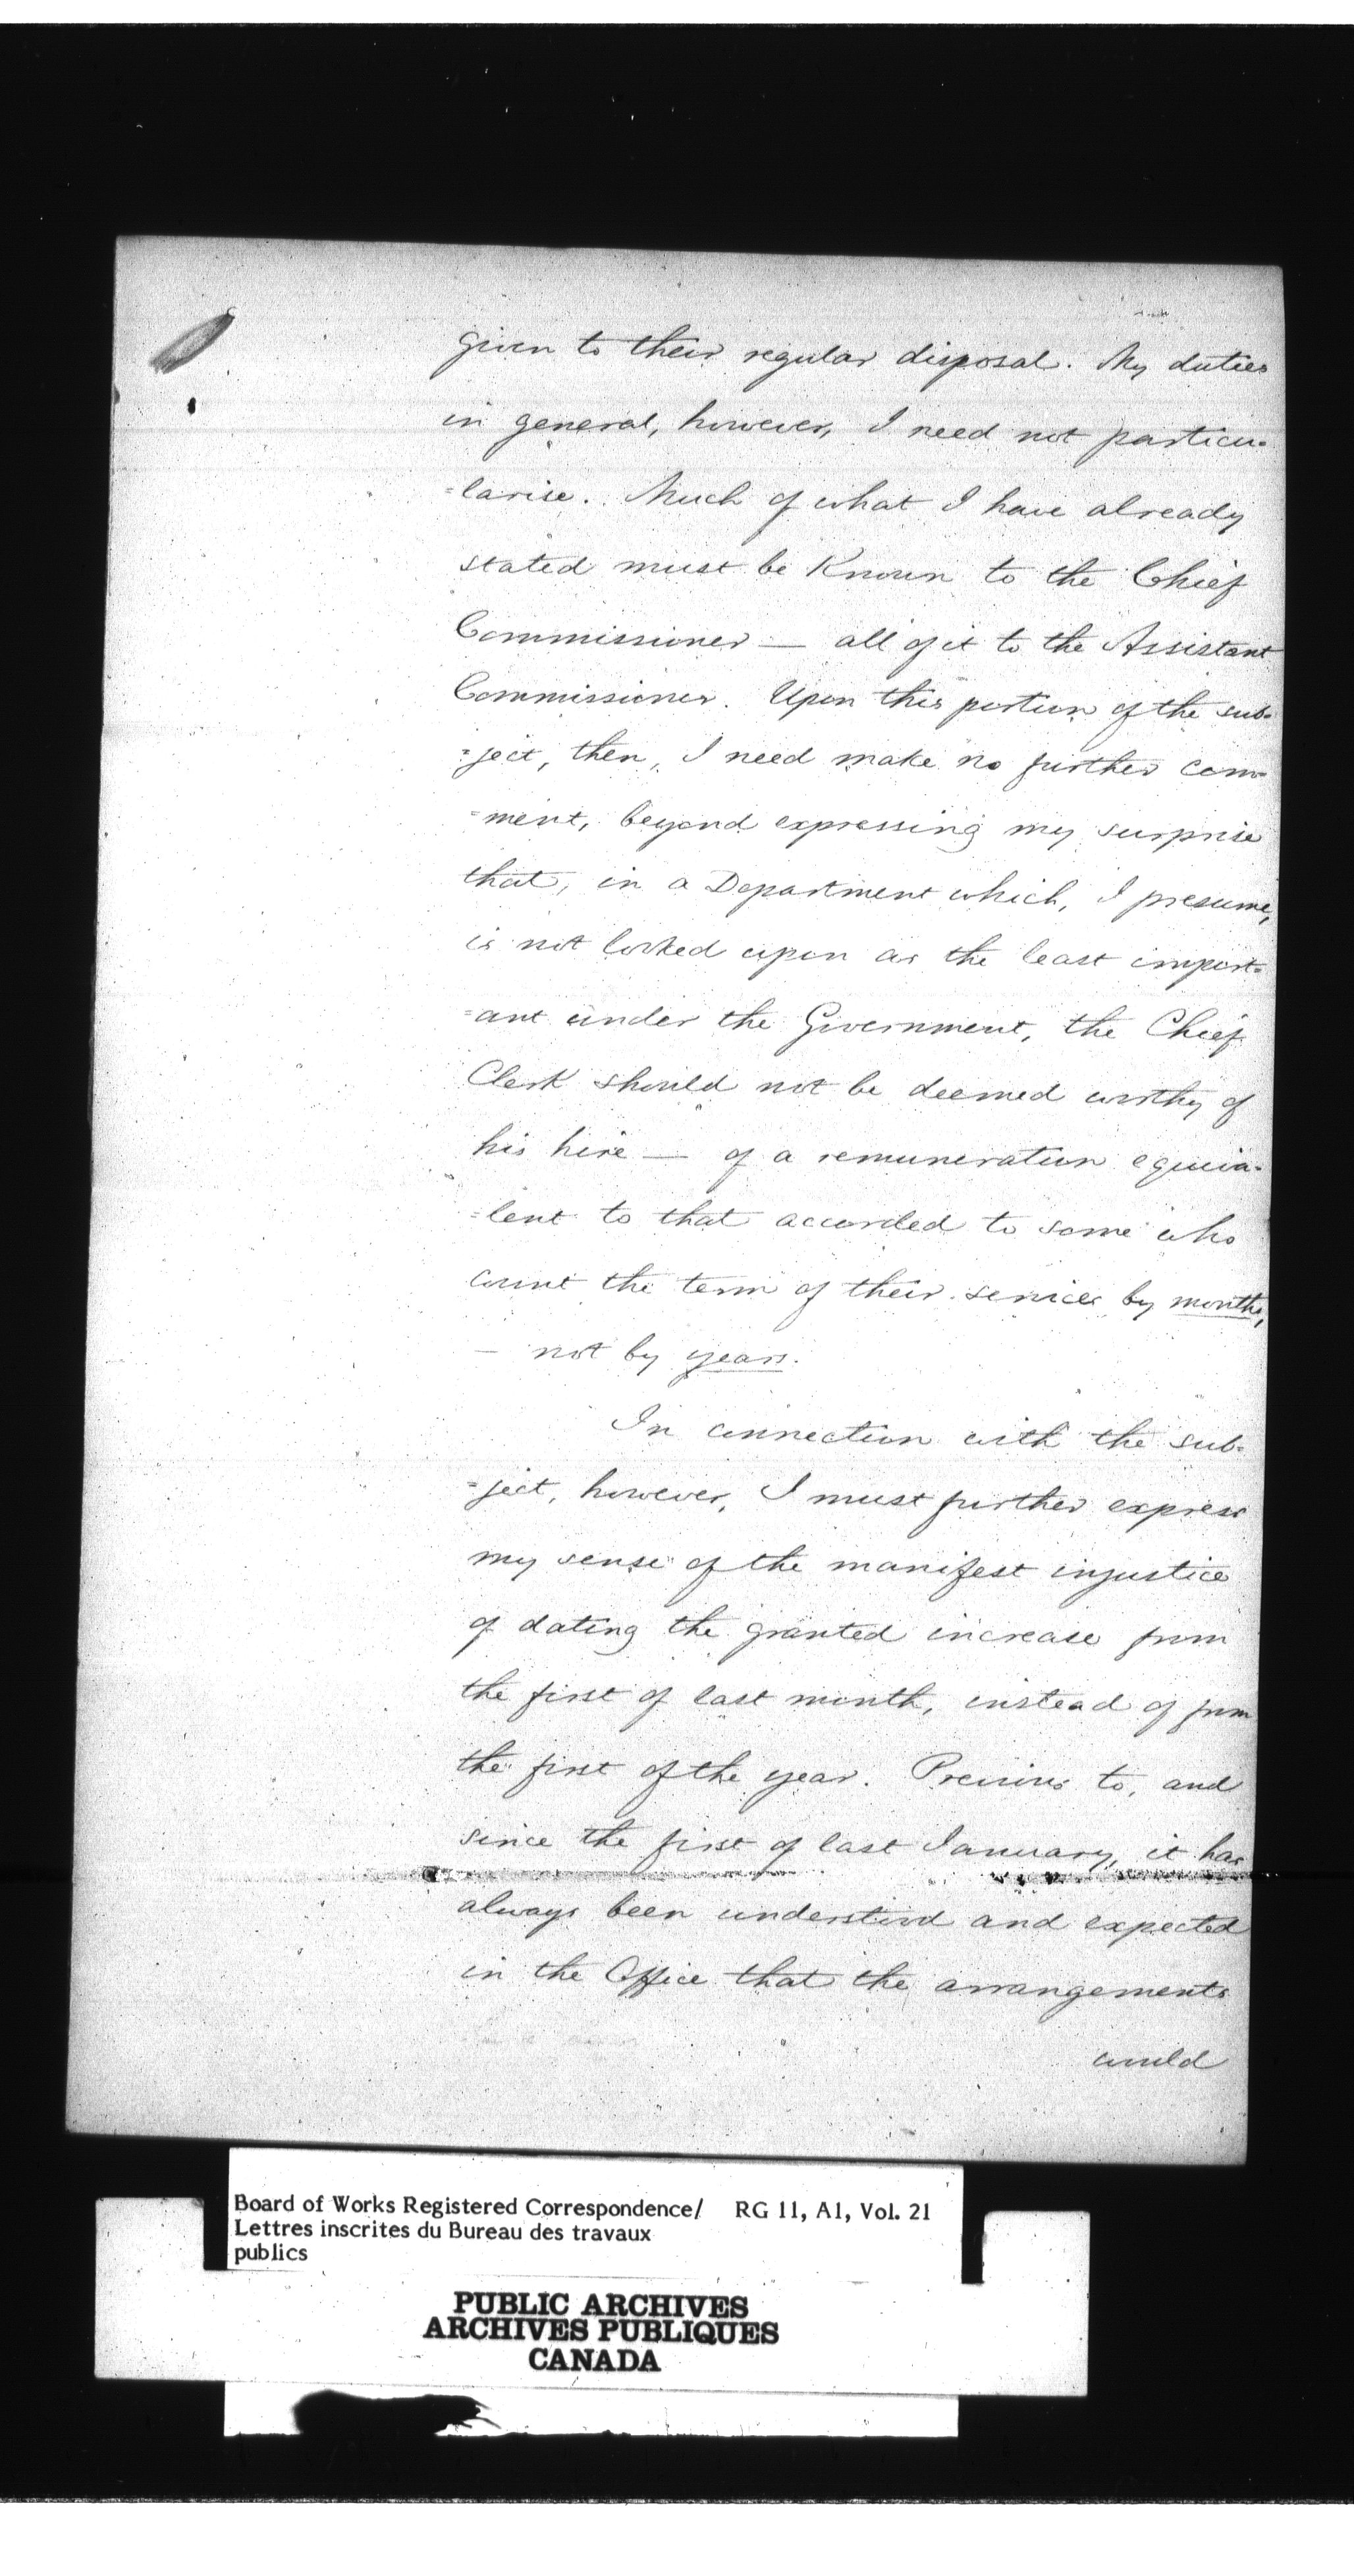 given to their regular disposal. My duties
in general, however, I need not particu-
=larise. Much of what I have already
stated must be known to the Chief
Commissioner — all of it to the Assistant
Commissioner. Upon this portion of the sub-
=ject, then, I need make no further com-
=ment, beyond expressing my surprise
that, in a Department which, I presume,
is not looked upon as the least import-
=ant under the Government, the Chief
Clerk should not be deemed worthy of
his hire — of a remuneration equiva-
=lent to that accorded to some who
count the term of their services by months,
— not by years.
In connection with the sub-
=ject, however, I must further express
my sense of the manifest injustice
of dating the granted increase from
the first of last month, instead of from
the first of the year. Previous to, and
since the first of last January, it has
always been understood and expected
in the Office that the arrangements
would
Board of Works Registered Correspondence/ RG 11, A1, Vol. 21
Lettres inscrites du Bureau des travaux
publics
PUBLIC ARCHIVES
ARCHIVES PUBLIQUES
CANADA